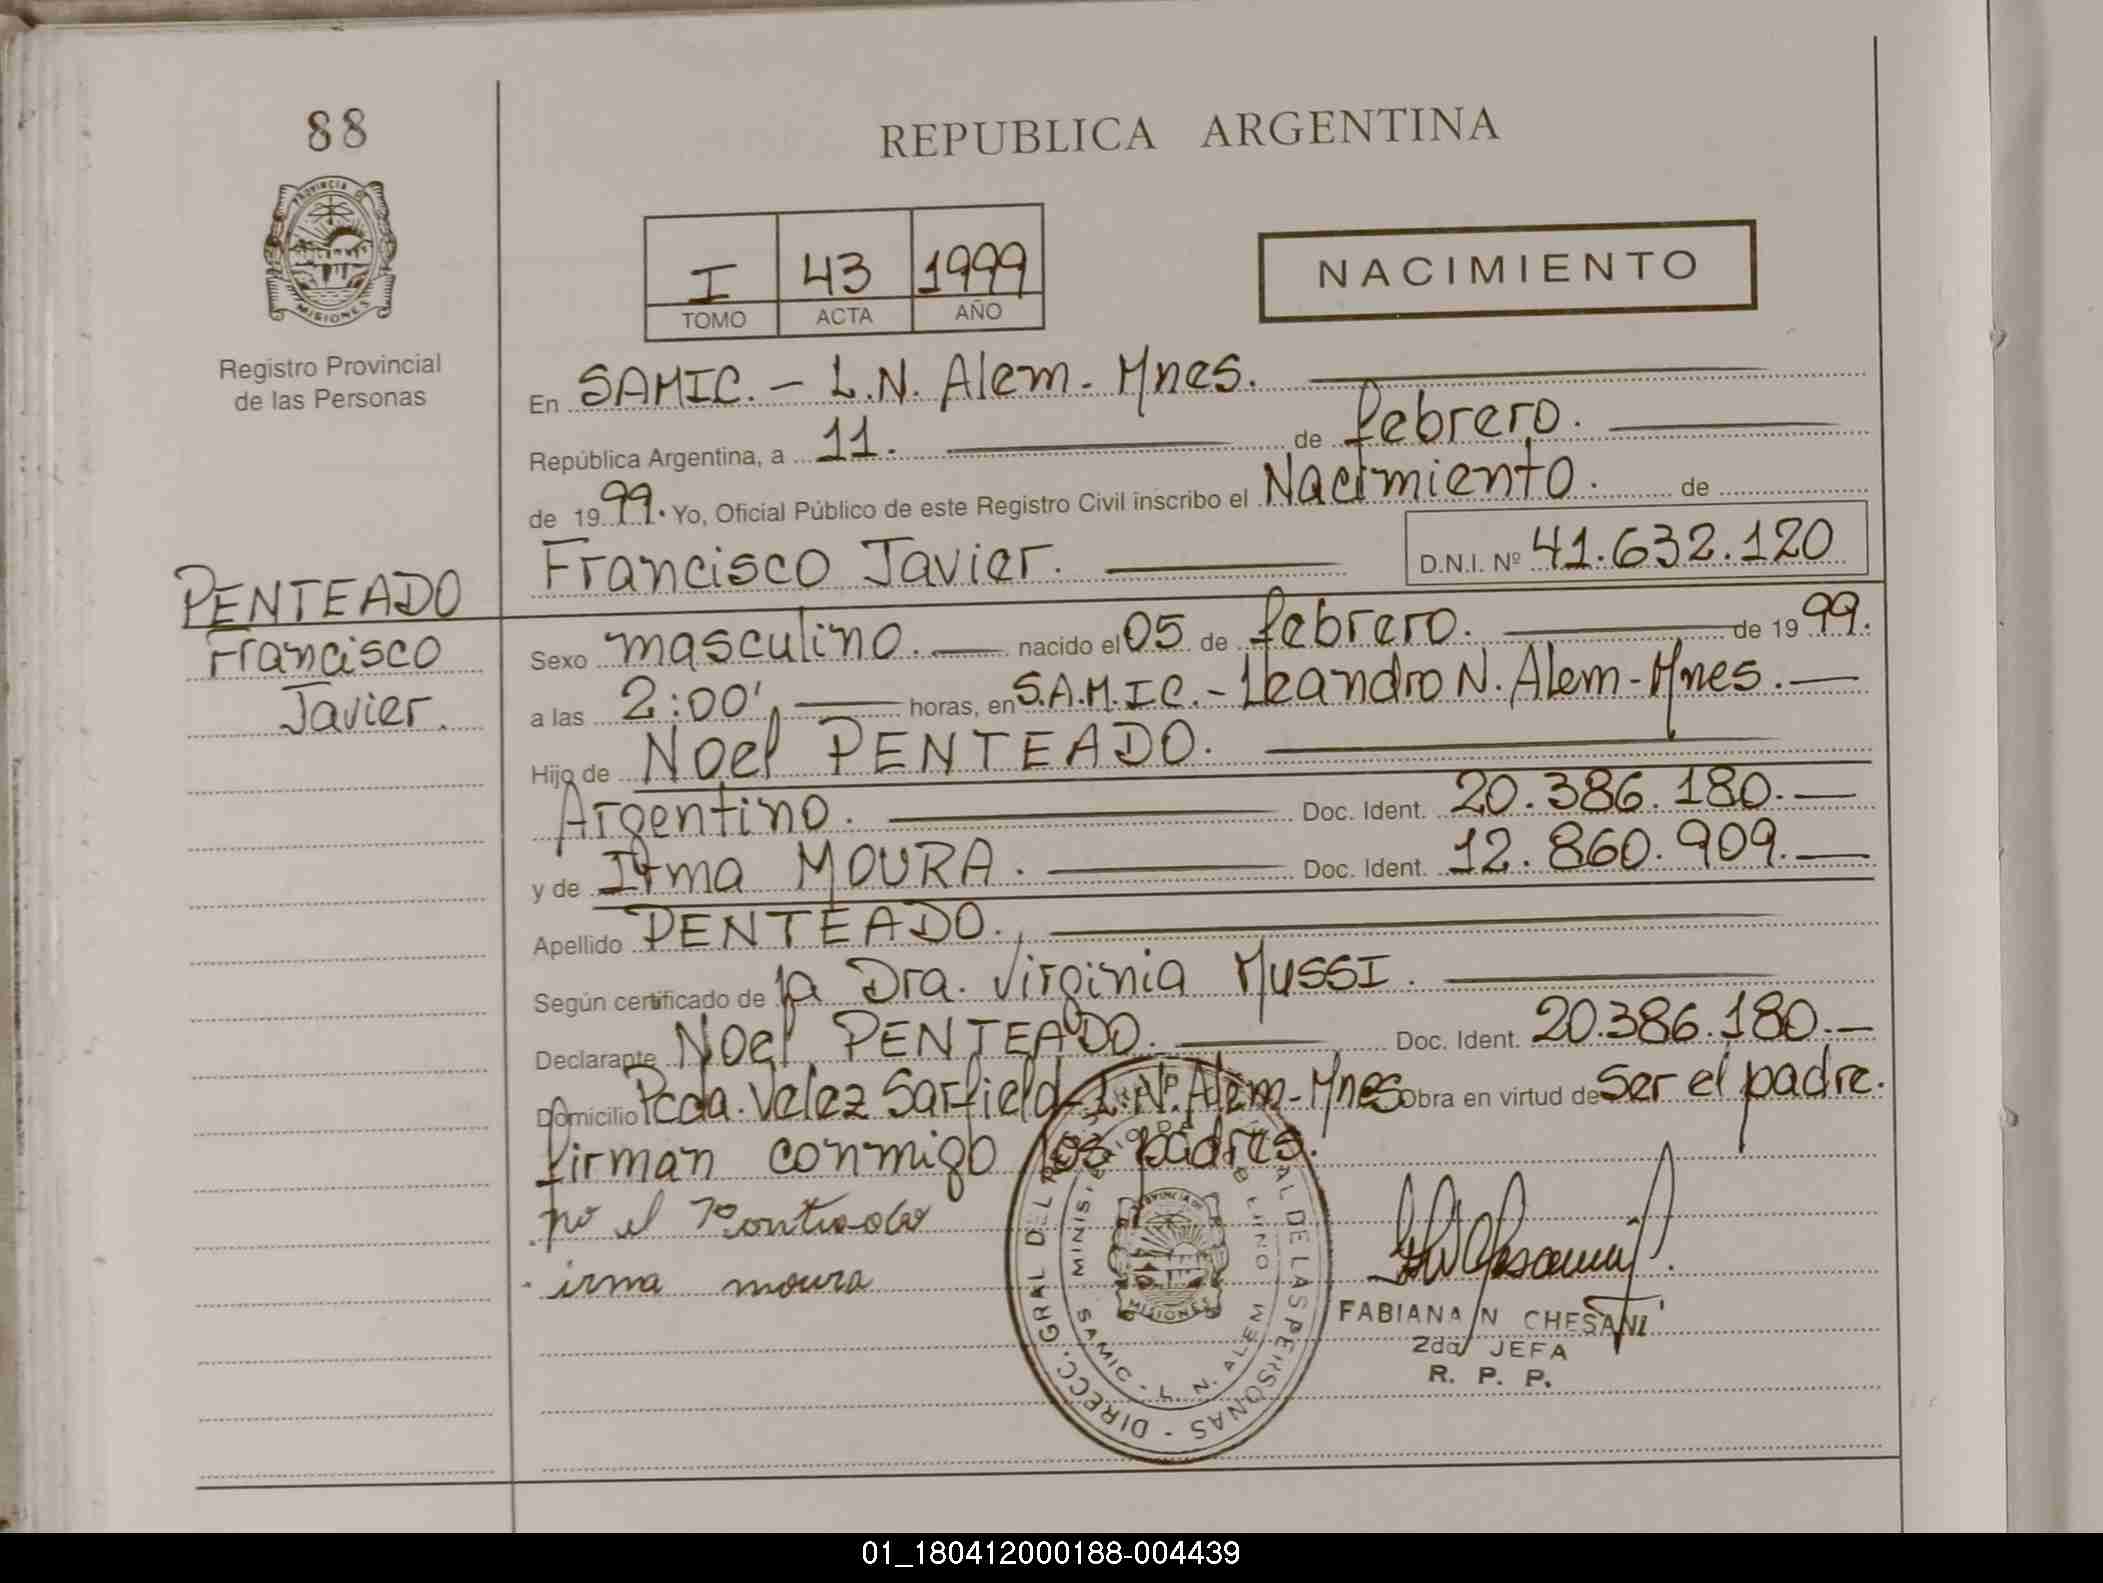 88
REPUBLICA ARGENTINA
PROVINCIA DE
MISIONES
Registro Provincial
de las Personas
I 43 1999
TOMO ACTA AÑO
NACIMIENTO
En SAMIC. - L.N. Alem - Mnes.
República Argentina, a 11. de febrero.
de 1999. Yo, Oficial Público de este Registro Civil inscribo el Nacimiento. de
Francisco Javier. D.N.I. Nº 41.632.120
PENTEADO
Francisco
Javier.
Sexo masculino. nacido el 05 de febrero. de 1999.
a las 2:00' horas, en S.A.M.I.C. - Leandro N. Alem - Mnes.
Hijo de Noel PENTEADO.
Argentino. Doc. Ident. 20.386.180.
y de Irma MOURA. Doc. Ident. 12.860.909.
Apellido PENTEADO.
Según certificado de la Dra. Virginia MUSSI.
Declarante Noel PENTEADO. Doc. Ident. 20.386.180.
Domicilio Pcda. Velez Sarfield - L.N. Alem - Mnes Obra en virtud de ser el padre.
firman conmigo los padres.
irma moura
DIRECC. GRAL DEL DE LAS PERSONAS
SAMIC - L. N. ALEM
MISIONES
FABIANA N CHESANI
2da JEFA
R. P. P.
01_180412000188-004439